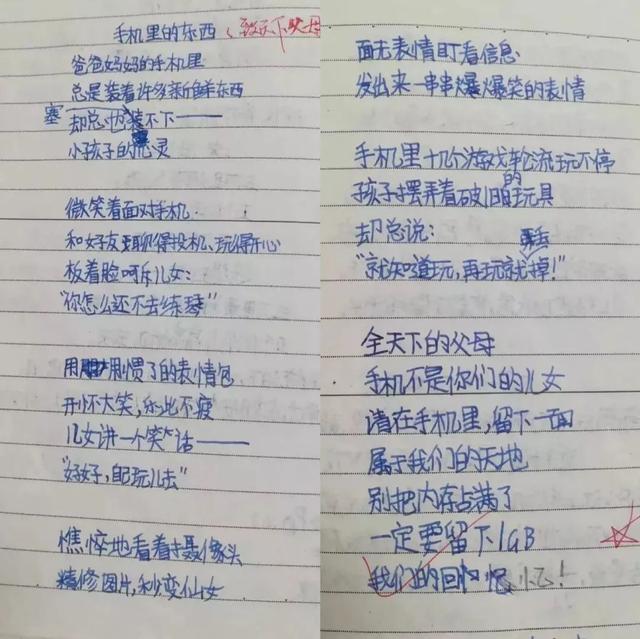 手机里的东西 (致天下父母
爸爸妈妈的手机里
总是装着许多新鲜东西
却总塞不下——
小孩子的心灵
微笑着面对手机
和好友聊得投机、玩得开心
板着脸呵斥儿女:
"你怎么还不去练琴"
用惯了的表情包
开怀大笑,乐此不疲
儿女讲一个笑话——
"好好,自己玩儿去"
憔悴地看着摄像头
精修图片,秒变仙女
面无表情盯着信息
发出来一串串爆笑的表情
手机里十几个游戏轮流玩不停
孩子摆弄着破旧的玩具
却总说:
"就知道玩,再玩就丢掉!"
全天下的父母
手机不是你们的儿女
请在手机里,留下一面
属于我们的天地
别把内存占满了
一定要留下1GB
我们的回忆!